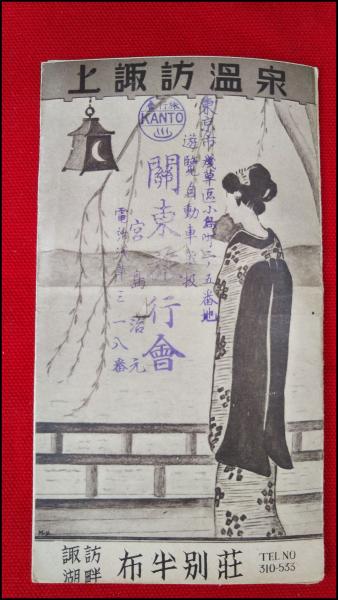 上諏訪溫泉
會行旅
KANTO
東京市淺草區小島町二ノ五番地
遊覽自動車取扱
關東旅行會
宮島治元
三一八番
諏訪
湖畔
布半別莊
TEL NO
310-533